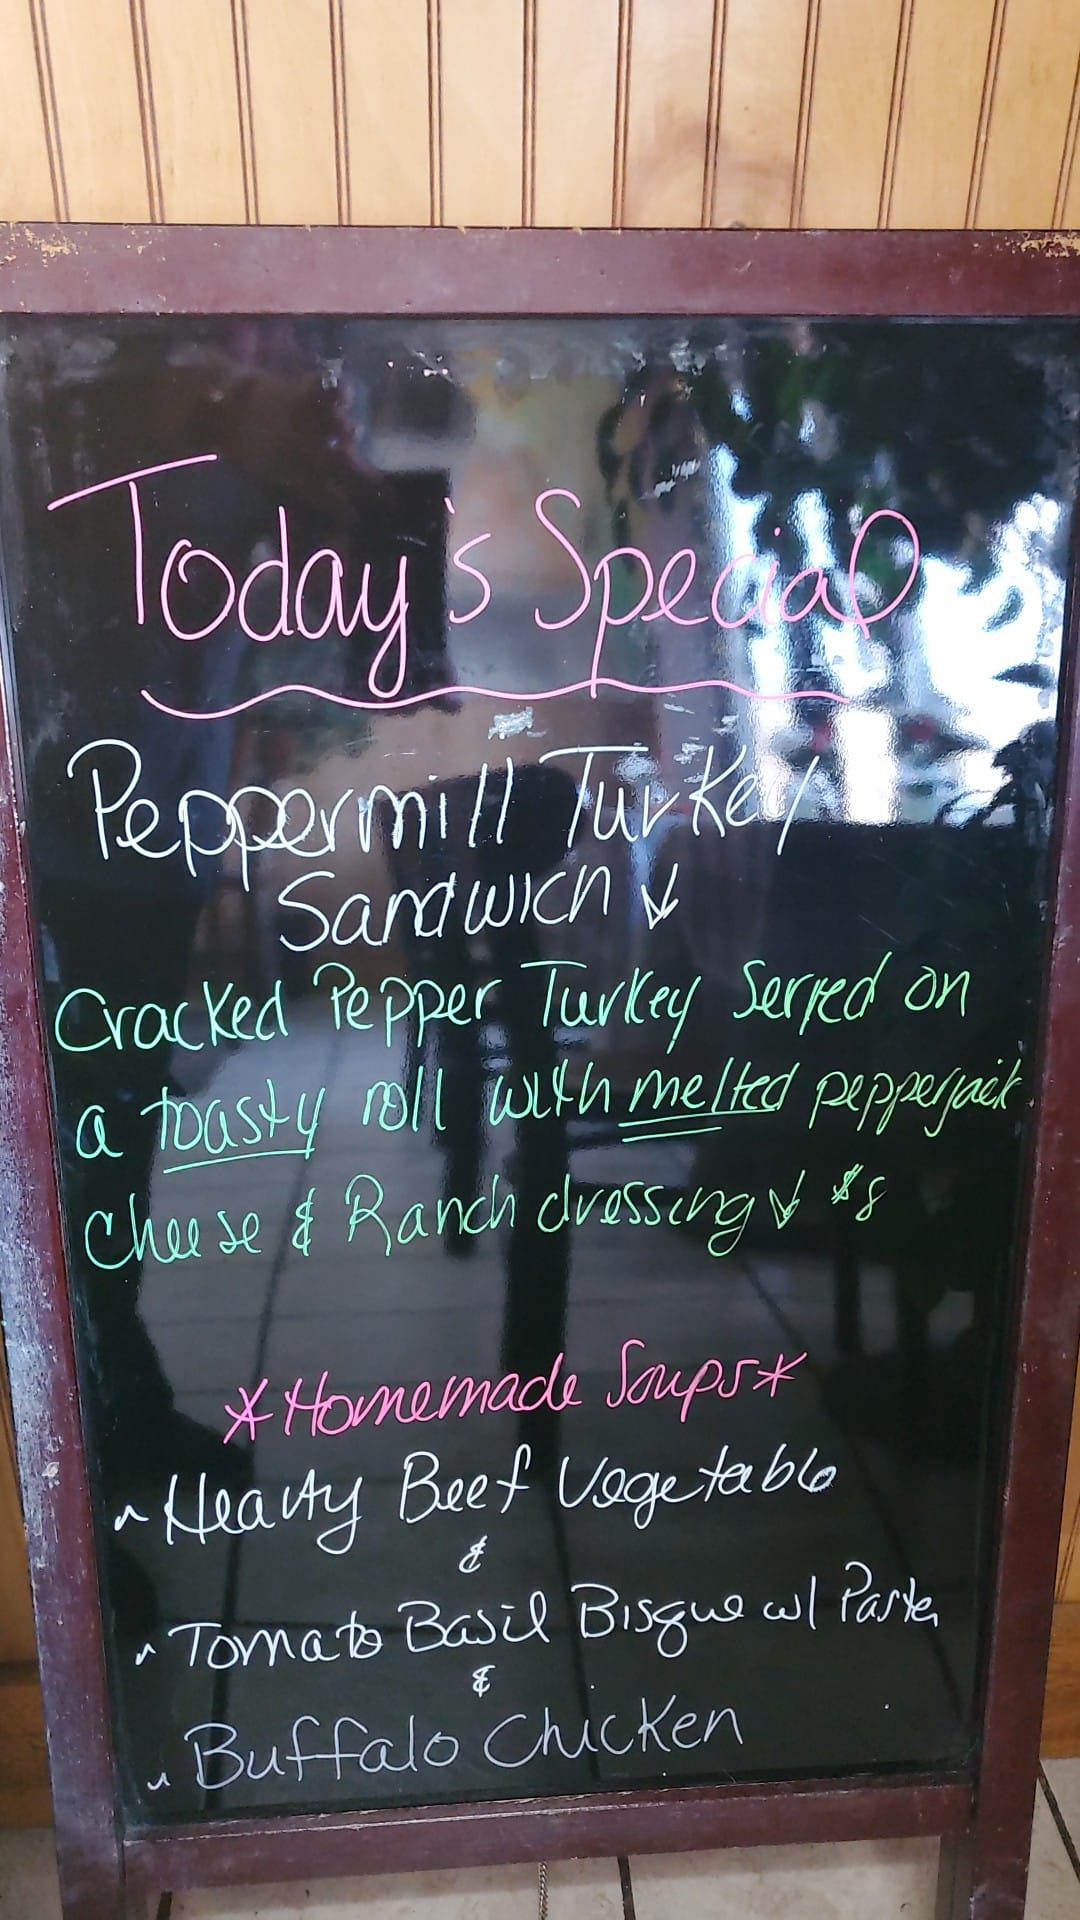 Today's Special
Peppermill Turkey
Sandwich ↓
Cracked Pepper Turkey Served on
a toasty roll with melted pepperjack
Cheese & Ranch dressing ↓ $8
*Homemade Soups*
~ Hearty Beef Vegetable
&
~ Tomato Basil Bisque w/ Pasta
&
~ Buffalo Chicken